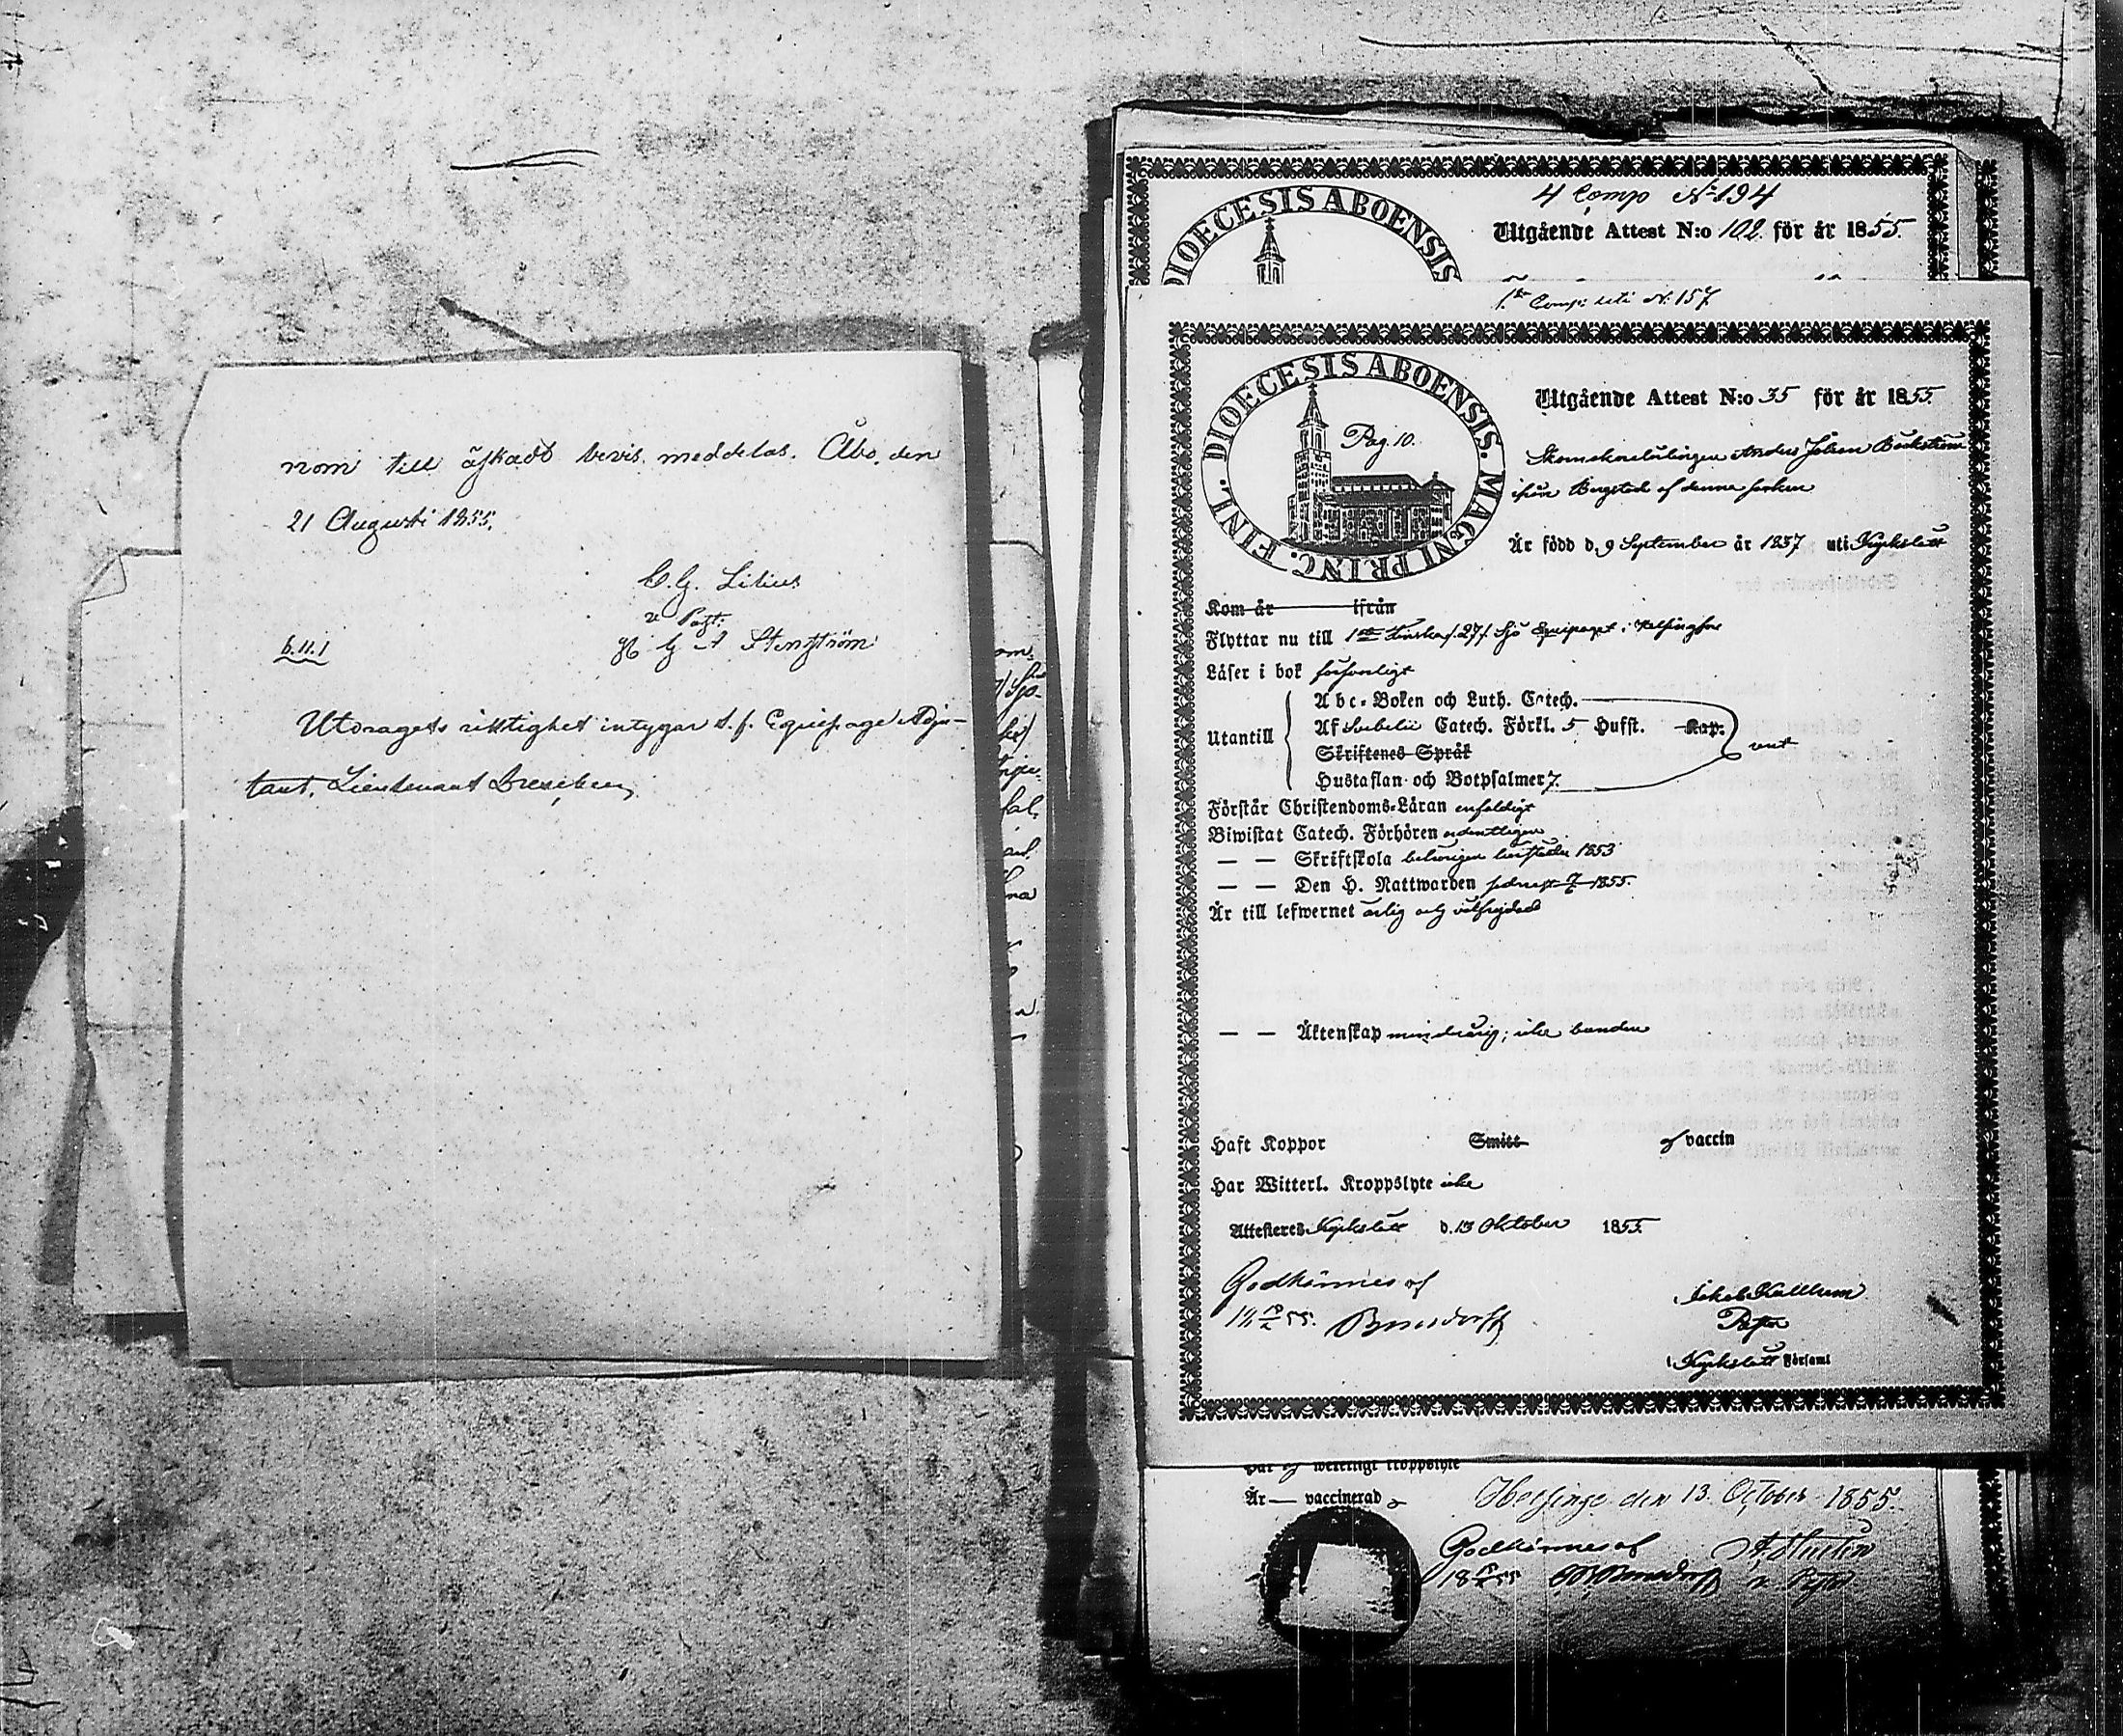 nom till äskadt bevis meddelas. Åbo, den
21 Augusti 1855.
C.G. Lilius
v Past:
G A Stenström
6.11.1
Utdragets riktighet intygar t.f. Equipage Adju-
tant, Lieutenant
4 Comp No 194
DIOECESIS ABOENSIS
Utgående Attest N:o 102 för år 1855.
1ste Comp: N: 157
DIOECESIS ABOENSIS. MAGNI PRINC. FINL.
Pag. 10.
Utgående Attest N:o 35 för år 1855.
Anders Johan Backström
ifrån Bergstad af denna socken
Är född d. 9 September år 1837 uti Kyrkslätt
Kom år ifrån
Flyttar nu till 1sta Finska Sjö Equipaget i Helsingfors
Läser i bok försvarligt
Utantill
Abc-Boken och Luth. Catech.
Af Svebelii Catech. Förkl. 5 Hufst. Kap.
Skriftenes Språk
Hustaflan och Botpsalmer 7.
Förstår Christendoms-Läran enfaldigt
Biwistat Catech. Förhören ordentligen
— — Skriftskola behörigen 1853
— — Den H. Nattwarden 1855.
Är till lefwernet ärlig och välfrejdad
— — Äktenskap minderårig; icke bunden
Haft Koppor Smitt vaccin
Har Witterl. Kroppslyte icke
Attesteres Kyrkslätt d. 13 Oktober 1855.
Godkännes af
55. Bonsdorff
Pastor
i Kyrkslätt Församl
Har ej weterligt kroppslyte
Är — vaccinerad
Helsinge den 13 October 1855.
Godkännes af
Bonsdorff